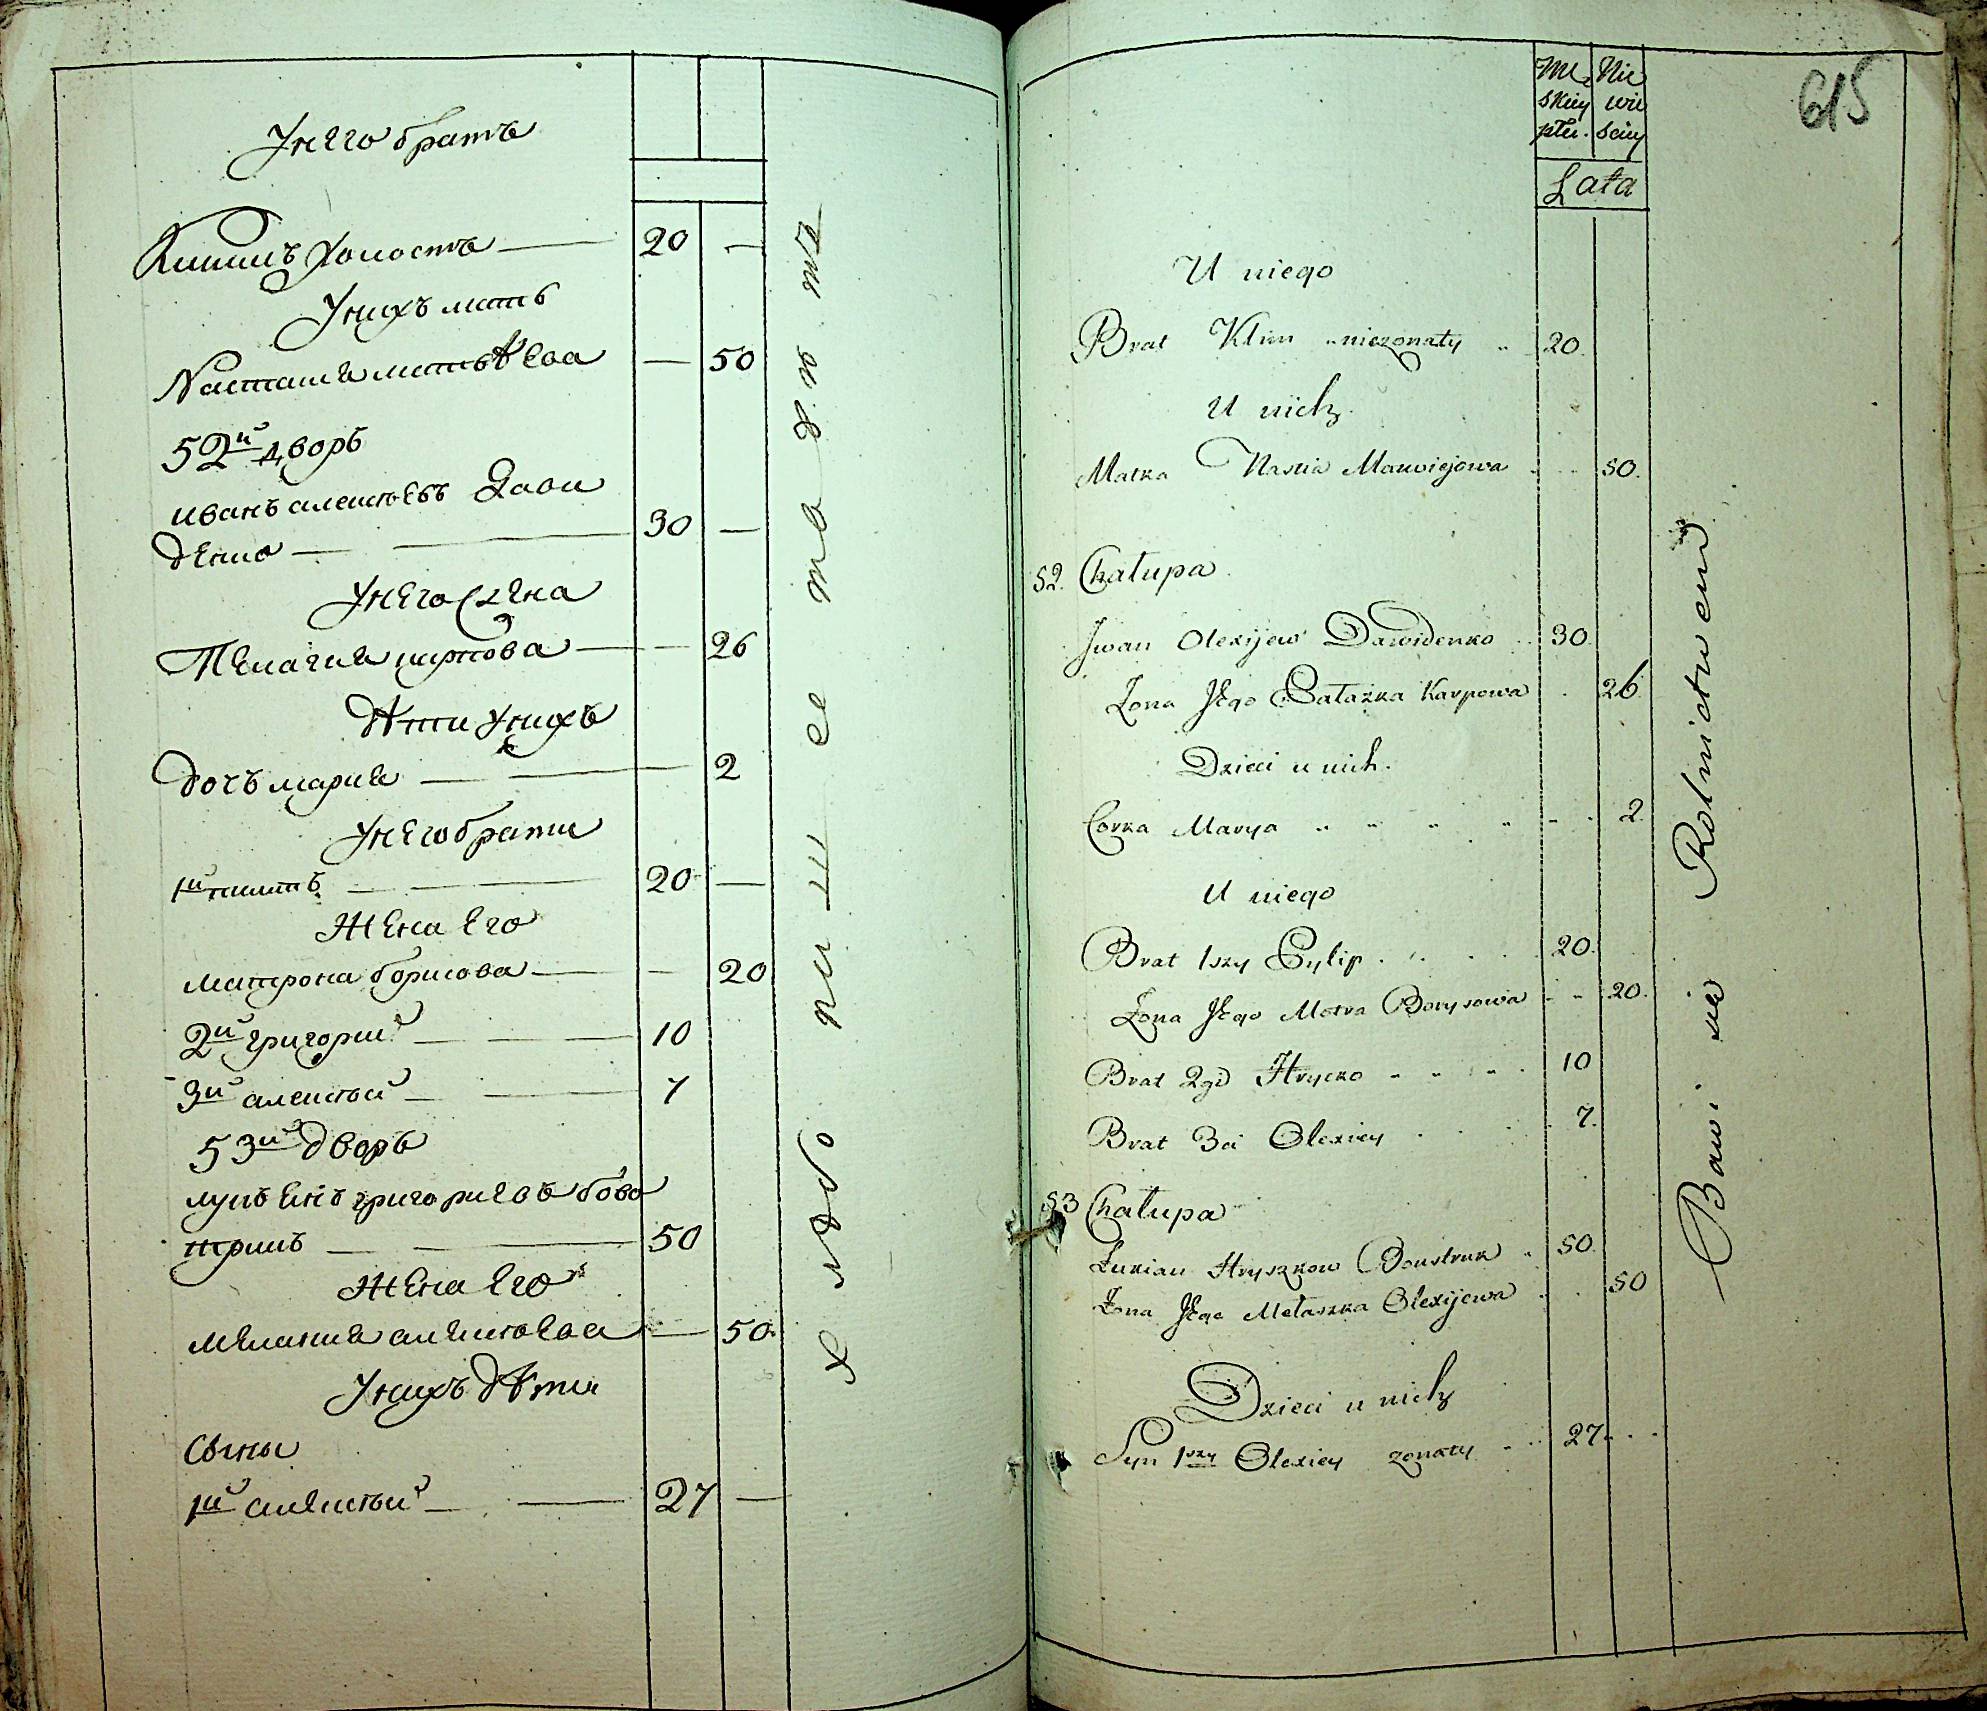 У него братъ
Климъ холостъ 20 —
У нихъ мать
Настасия матвѣева — 50
52й дворъ
иванъ алексѣевъ Дави
денко 30 —
У него жена
Пелагия карпова — 26
дѣти У нихъ
дочь мария 2
У него брати
1й филипъ 20 —
Жена Его
матрона борисова — 20
2й григорий 10
3й алексѣй 7
53й дворъ
лукъянъ григориевъ бов
трукъ 50
Жена Его
мелания алексѣева — 50
У нихъ дѣти
Сыны
1й алексѣй 27 —
хлѣбо пашествуютъ
615
Mę Nie
skiey wie
płci. sciey
Lata
U niego
Brat Klim nieżonaty 20.
U nich.
Matka Nastia Matwiejowa 50.
52. Chałupa
Jwan Olexijew Dawidenko 30.
Żona Jego Pałażka Karpowa 26.
Dzieci u nich.
Corka Marya 2.
U niego
Brat 1szy Pylip 20.
Żona Jego Motra Borysowa 20.
Brat 2gi Hrycko 10
Brat 3ci Olexiey 7.
53 Chałupa
Łukian Hryszkow Bowtruk 50.
Żona Jego Mełaszka Olexijowa 50
Dzieci u nich
Syn 1szy Olexiey żonaty 27
Bawi sie Rolnictwem